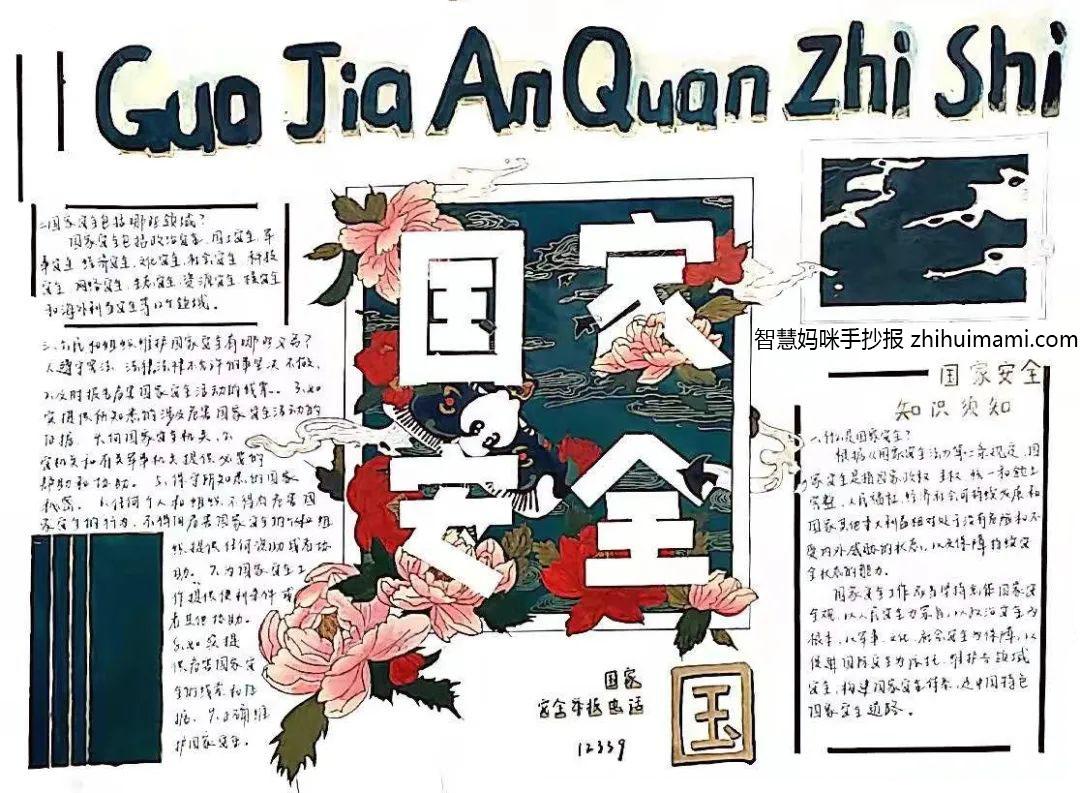 Guo Jia An Quan Zhi Shi
国家
安全
智慧妈咪手抄报 zhihuimami.com
二国家安全包括哪些领域?
国家安全包括政治安全、国土安全、军
事安全、经济安全、文化安全、社会安全、科技
安全、网络安全、生态安全、资源安全、核安全
和海外利益安全等12个领域。
三、公民和组织维护国家安全有哪些义务?
2.及时报告危害国家安全活动的线索。 3.如
实提供所知悉的涉及危害国家安全活动的
证据
安机关和有关军事机关提供必要的
帮助和协助。 5.保守所知悉的国家
秘密。 6.任何个人和组织不得有危害国
家安全的行为,不得向危害国家安全的个人和组
织提供任何资助或者协
助。 7.为国家安全工
作提供便利条件或
者其他协助。
8.如实提
供危害国家安
全的线索和证
据。 9.正确维
护国家安全。
国家安全
知识须知
一、什么是国家安全?
根据《国家安全法》第二条规定,国
家安全是指国家政权、主权、统一和领土
完整、人民福祉、经济社会可持续发展和
国家其他重大利益相对处于没有危险和不
受内外威胁的状态,以及保障持续安
全状态的能力。
国家安全工作应当坚持总体国家安
全观,以人民安全为宗旨,以政治安全为
根本,以军事、文化、社会安全为保障,以
促进国际安全为依托,维护各领域
安全,构建国家安全体系,走中国特色
国家安全道路。
国家
安全举报电话
12339
国